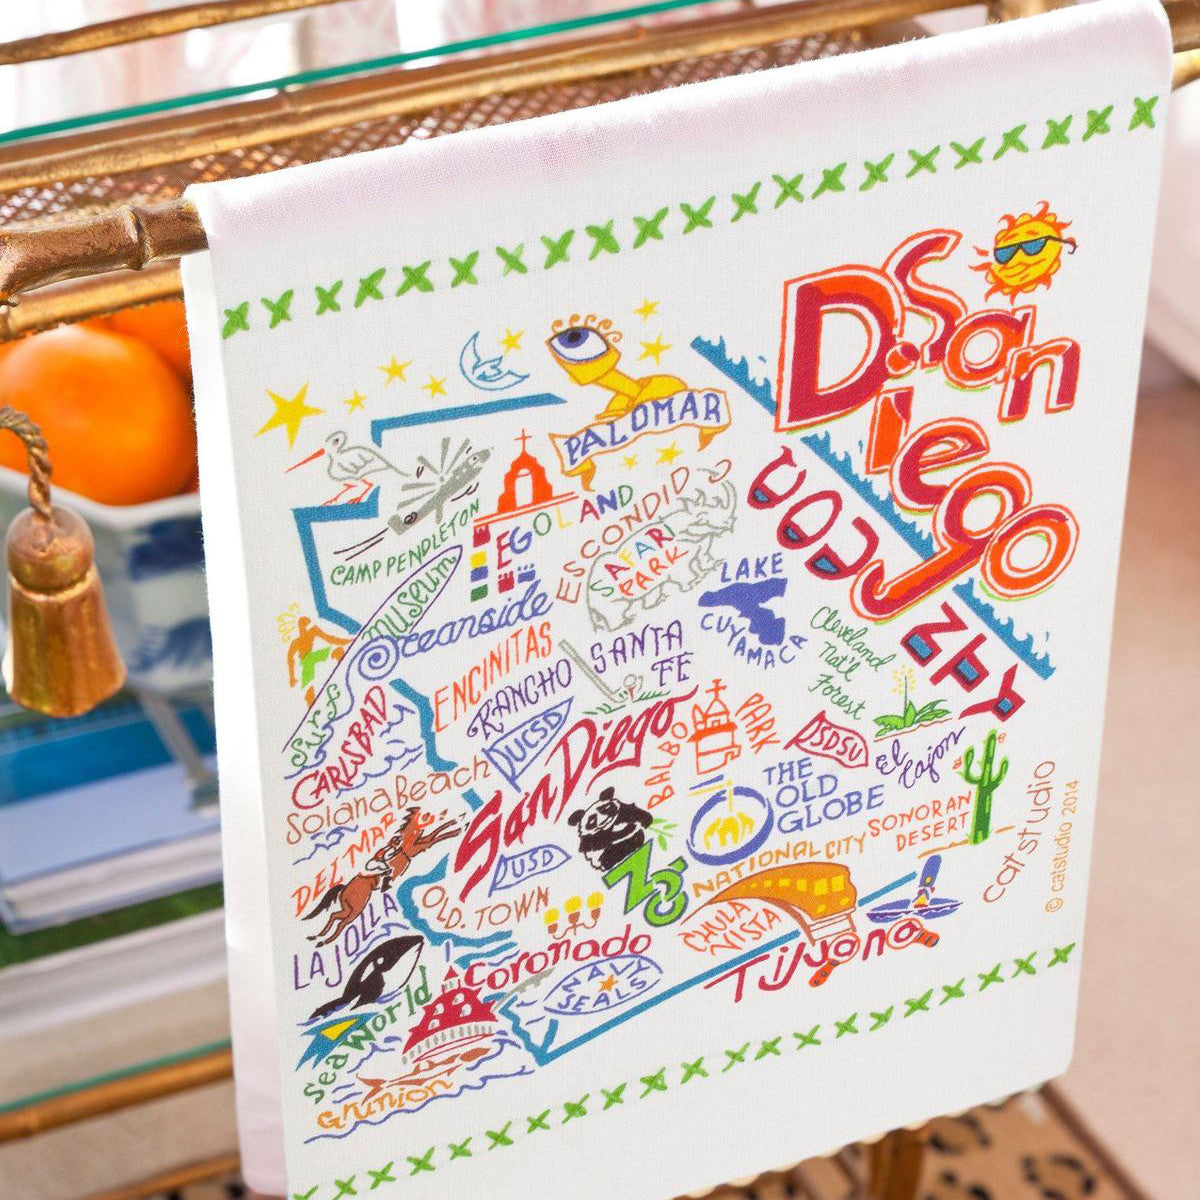 San
Diego
COUNTY
PALOMAR
CAMP PENDLETON
LEGOLAND
ESCONDIDO
SAFARI
PARK
Surf museum
Oceanside
LAKE
CUYAMACA
Cleveland
Nat'l
Forest
ENCINITAS
RANCHO
SANTA
FE
CARLSBAD
UCSD
San Diego
BALBOA
PARK
SDSU
El
Cajon
Solana Beach
THE
OLD
GLOBE
SONORAN
DESERT
DEL MAR
USD
ZOO
NATIONAL CITY
LA JOLLA
OLD TOWN
CHULA
VISTA
Tijuana
Coronado
NAVY
SEALS
Sea World
Grunion
catstudio
© catstudio 2014